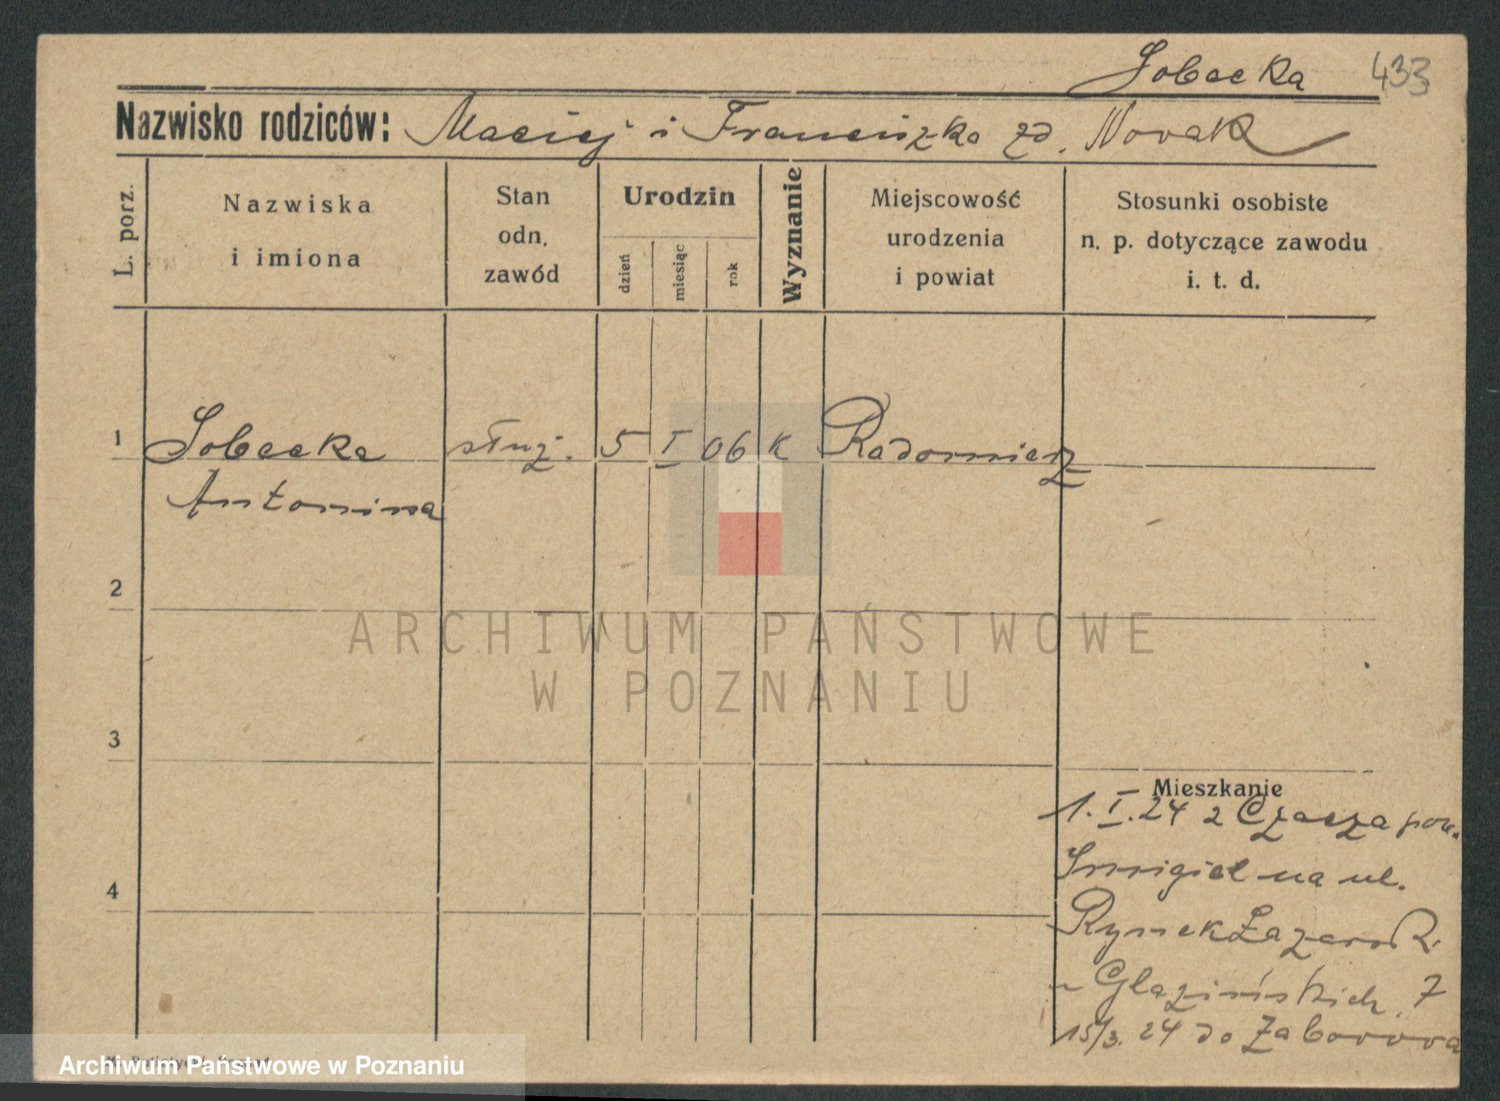 Sobecka 433
Nazwisko rodziców: Maciej i Franciszka zd. Novak
L. porz.
Nazwiska
i imiona
Stan
odn.
zawód
Urodzin
dzień
miesiąc
rok
Wyznanie
Miejscowość
urodzenia
i powiat
Stosunki osobiste
n. p. dotyczące zawodu
i. t. d.
1 Sobecka służ. 5 I 06 k Radomierz
Antonina
2
ARCHIWUM PAŃSTWOWE
W POZNANIU
3
Mieszkanie
1. I. 24 z Czacza pow.
4
Śmigiel na ul.
Rynek Łazarski 2.
u Glazińskich. 7
15/3. 24 do Zaborowa
Archiwum Państwowe w Poznaniu